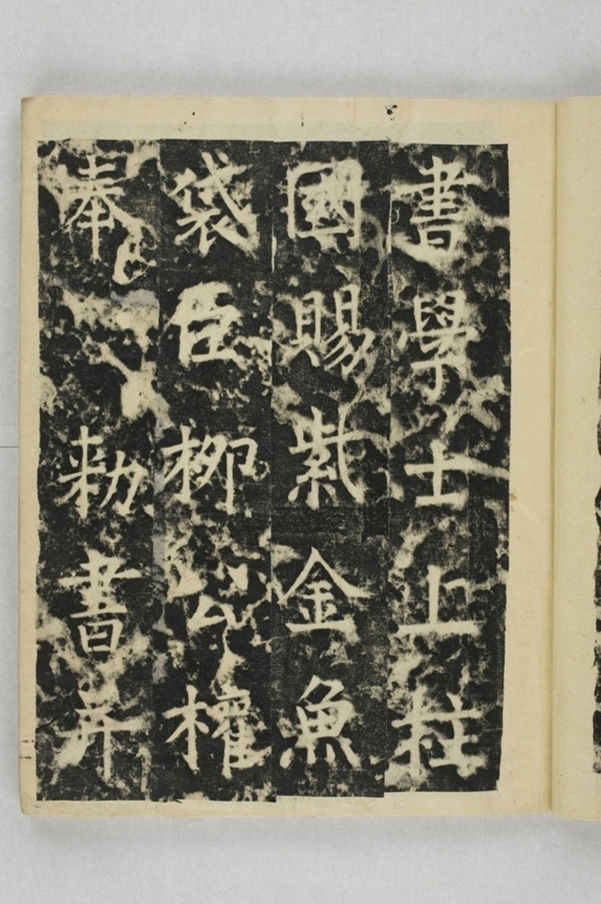 書學士上柱
國賜紫金魚
袋臣柳公權
奉 勑書并